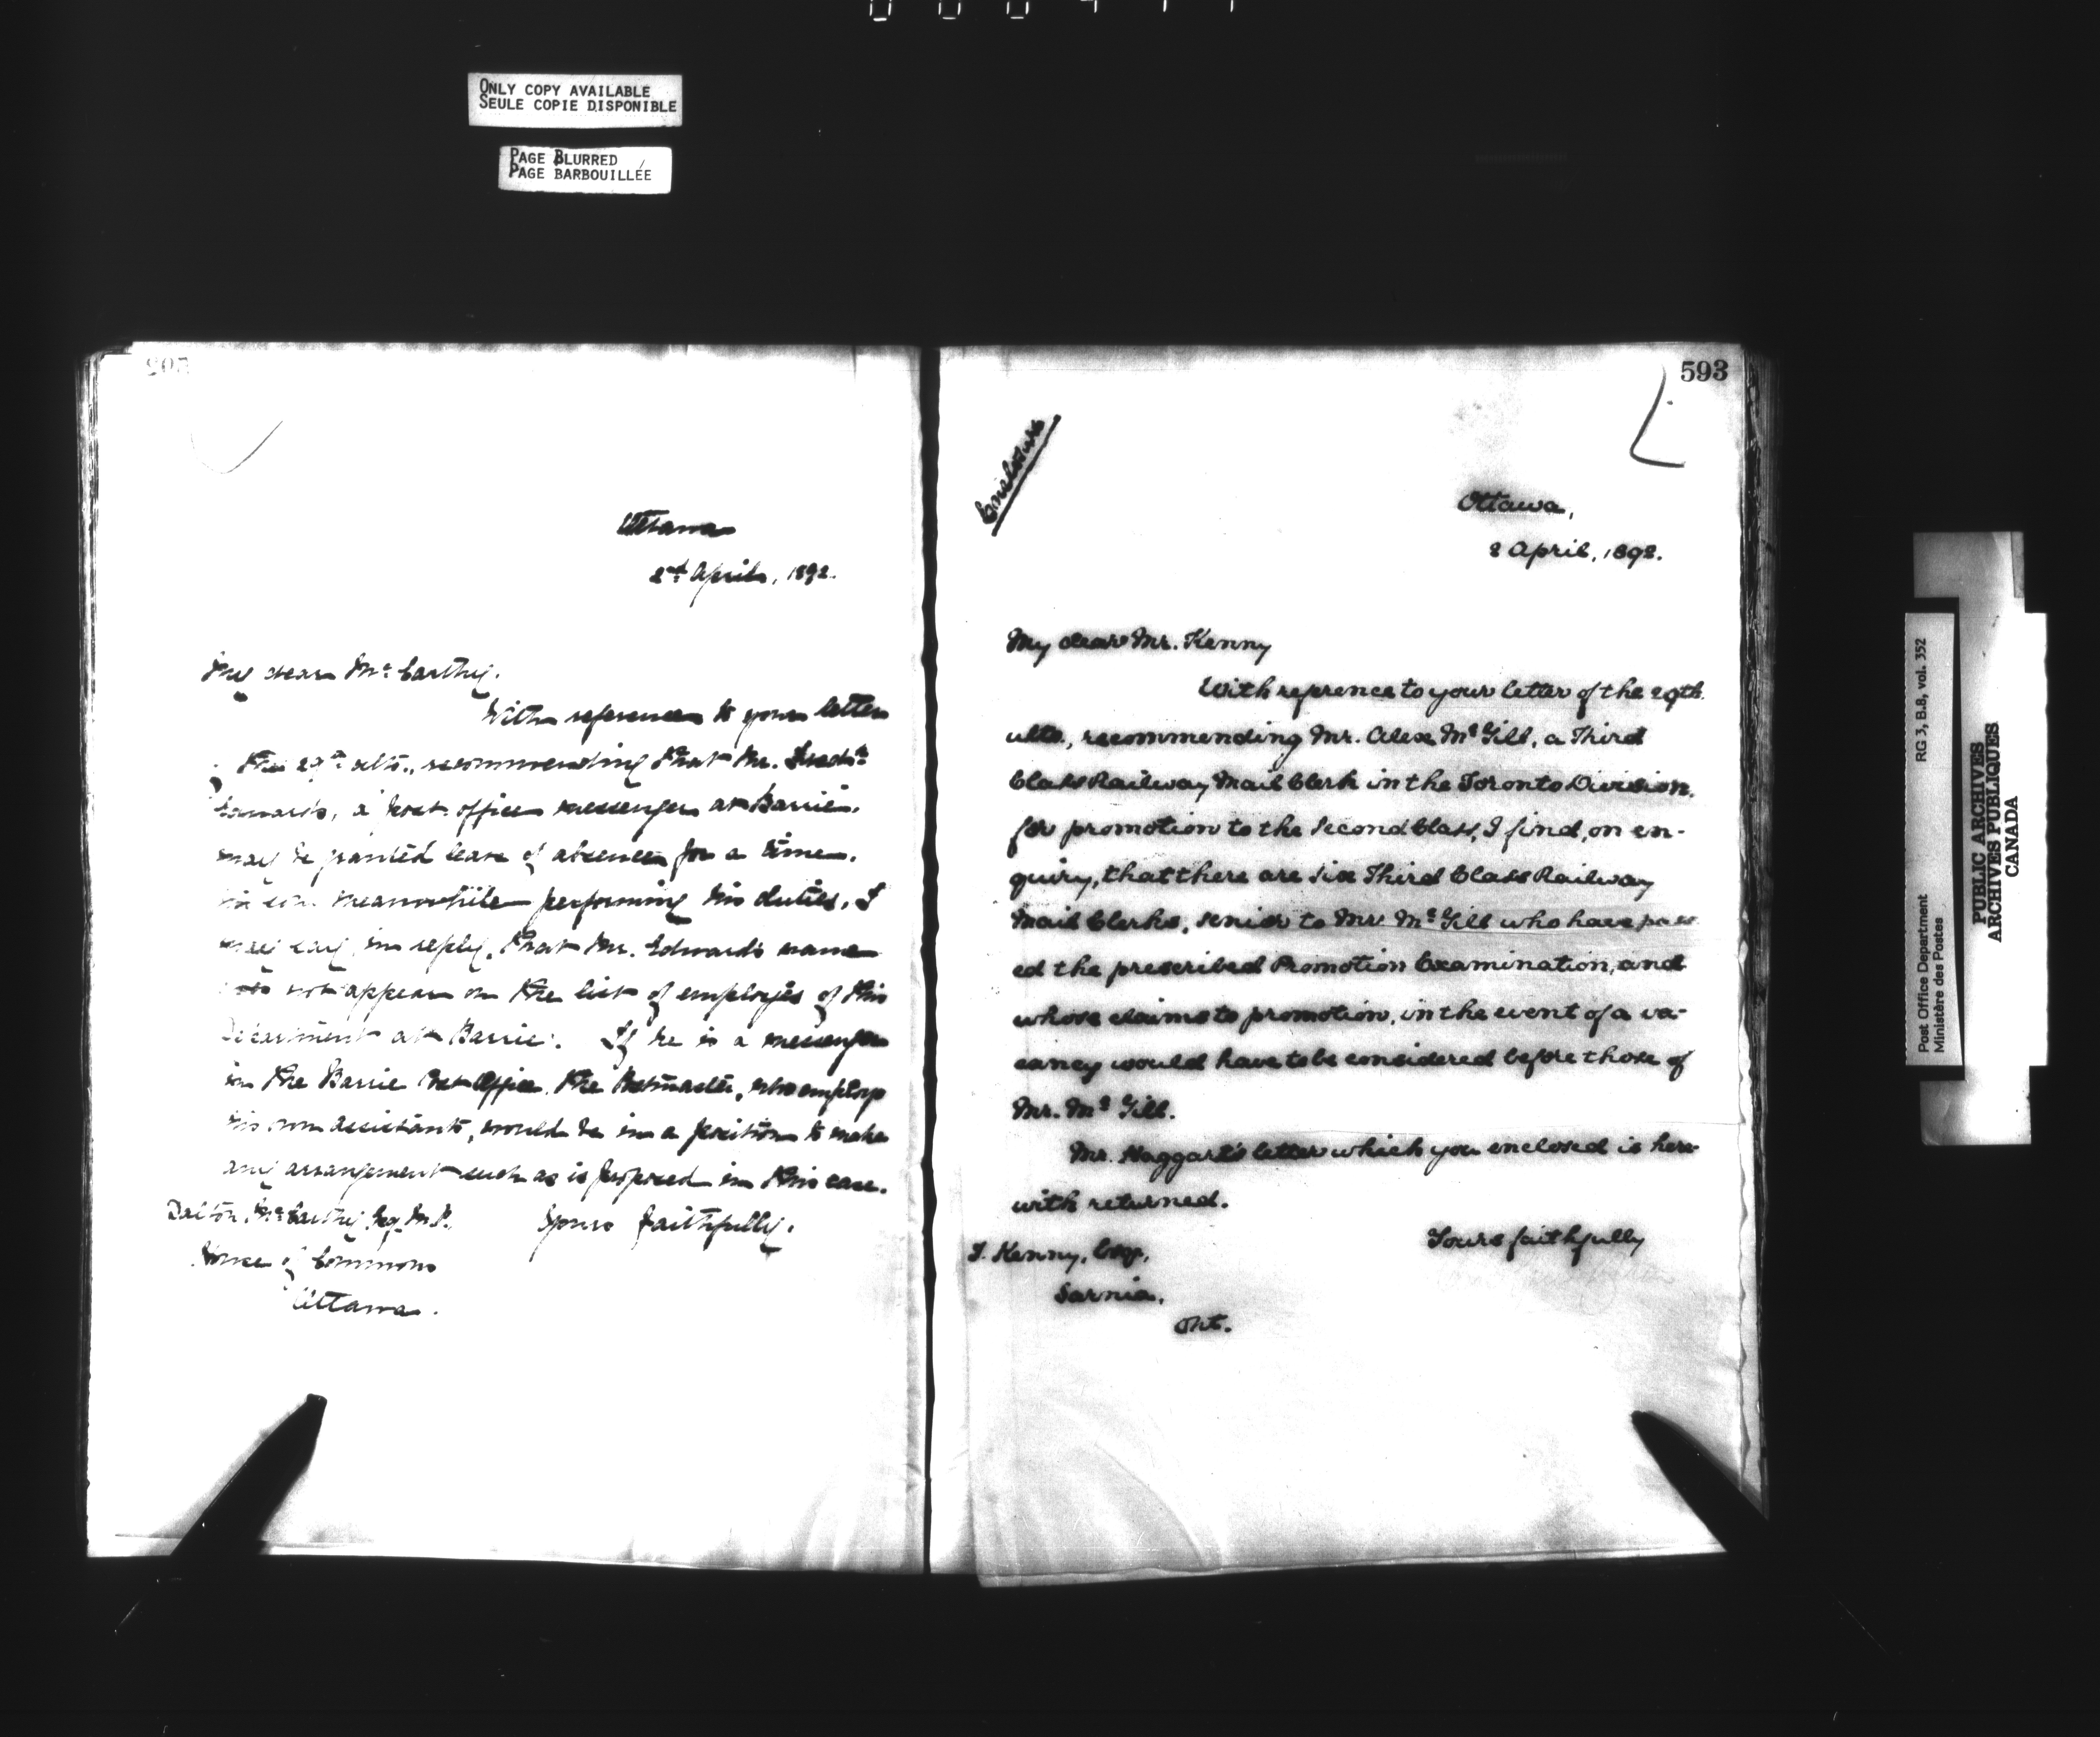 ONLY COPY AVAILABLE
SEULE COPIE DISPONIBLE
PAGE BLURRED
PAGE BARBOUILLÉE
Ottawa
2nd April, 1892.
My dear McCarthy.
With reference to your letter
the 29th ulto., recommending that Mr. Fredk
Edwards, a Post office messenger at Barrie,
may be granted leave of absence for a time,
his son meanwhile performing his duties, I
may say, in reply, that Mr. Edwards name
does not appear on the list of employés of this
Department at Barrie. If he is a messenger
in the Barrie Post Office, the Postmaster, who employs
his own assistants, would be in a position to make
any arrangement such as is proposed in this case.
Yours faithfully,
Dalton McCarthy, Esq. M.P.
House of Commons
Ottawa.
593
Enclosure
Ottawa,
2 April, 1892.
My dear Mr. Kenny
With reference to your letter of the 29th.
ulto., recommending Mr. Alex McGill, a Third
Class Railway Mail Clerk in the Toronto Division,
for promotion to the Second Class, I find, on en-
quiry, that there are six Third Class Railway
Mail Clerks, senior to Mr McGill who have pass
ed the prescribed Promotion Examination, and
whose claims to promotion, in the event of a va-
cancy would have to be considered before those of
Mr. McGill.
Mr. Haggart's letter which you enclosed is here
with returned.
Yours faithfully
T. Kenny, Esq.,
Sarnia,
Ont.
Post Office Department RG 3, B.8, vol. 352
Ministère des Postes
PUBLIC ARCHIVES
ARCHIVES PUBLIQUES
CANADA